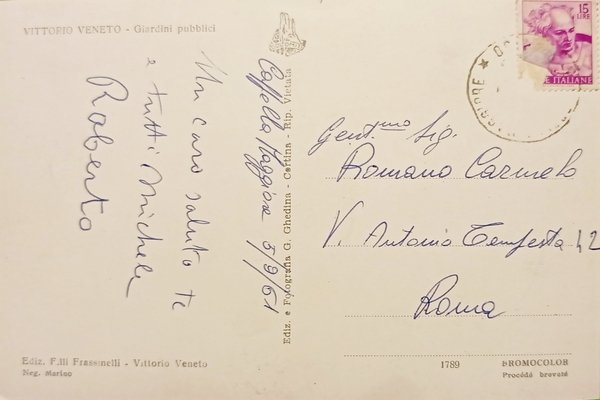 VITTORIO VENETO - Giardini pubblici
Cappella Maggiore 5/9/61
Un caro saluto te
e tutti Michele
Roberto
Ediz. e Fotografia G. Ghedina - Cortina - Rip. Vietata
15
LIRE
E ITALIANE
Gent.mo Sig.
Romano Carmelo
V. Antonio Tempesta 42
Roma
Ediz. F.lli Frassinelli - Vittorio Veneto
Neg. Marino
1789
BROMOCOLOR
Procédé breveté